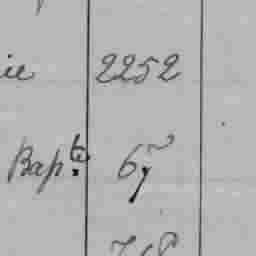 ie 2252
Bapte 67